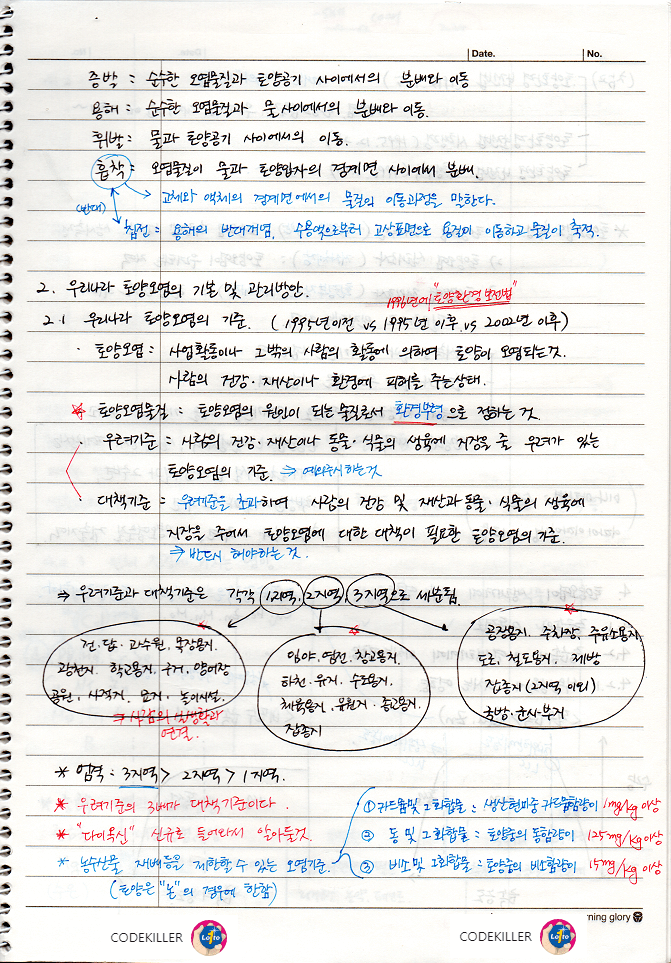 Date.
No.
증발 : 순수한 오염물질과 토양공기 사이에서의 분배와 이동
용해 : 순수한 오염물질과 물 사이에서의 분배와 이동.
휘발 : 물과 토양공기 사이에서의 이동.
흡착 : 오염물질이 물과 토양입자의 경계면 사이에서 분배.
고체와 액체의 경계면에서의 물질의 이동과정을 말한다.
(반대)
침전 : 용해의 반대개념. 수용액으로부터 고상표면으로 용질이 이동하고 물질이 축적.
2. 우리나라 토양오염의 기본 및 관리방안.
1996년에 "토양환경보전법"
2.1 우리나라 토양오염의 기준. (1995년이전 vs 1995년 이후 vs 2002년 이후)
· 토양오염 : 사업활동이나 그밖의 사람의 활동에 의하여 토양이 오염되는것.
사람의 건강·재산이나 환경에 피해를 주는상태.
* 토양오염물질 : 토양오염의 원인이 되는 물질로서 환경부령으로 정하는 것.
· 우려기준 = 사람의 건강·재산이나 동물·식물의 생육에 지장을 줄 우려가 있는
토양오염의 기준. ⇒ 예의주시하는것
· 대책기준 = 우려기준을 초과하여 사람의 건강 및 재산과 동물·식물의 생육에
지장을 주어서 토양오염에 대한 대책이 필요한 토양오염의 기준.
⇒ 반드시 해야하는 것.
⇒ 우려기준과 대책기준은 각각 1지역, 2지역, 3지역으로 세분됨.
전·답·과수원, 목장용지
광천지, 학교용지·구거, 양어장
공원, 사적지, 묘지, 놀이시설.
⇒ 사람의 실생활과
연결.
임야·염전, 창고용지,
하천·유지, 수도용지
체육용지, 유원지·종교용지,
잡종지
공장용지, 주차장, 주유소용지
도로, 철도용지, 제방
잡종지 (2지역 이외)
국방·군사부지
* 엄격 : 3지역 > 2지역 > 1지역.
* 우려기준의 3배가 대책기준이다.
* "다이옥신" 신규로 들어와서 알아둘것.
* 농수산물 재배등을 제한할 수 있는 오염기준.
(토양은 "논"의 경우에 한함)
① 카드뮴및 그화합물 : 생산현미중 카드뮴함량이 1mg/kg 이상
② 동 및 그화합물 : 토양중의 동함량이 125mg/kg 이상
③ 비소 및 그화합물 : 토양중의 비소함량이 15mg/kg 이상
ning glory
CODEKILLER Lotto
CODEKILLER Lotto